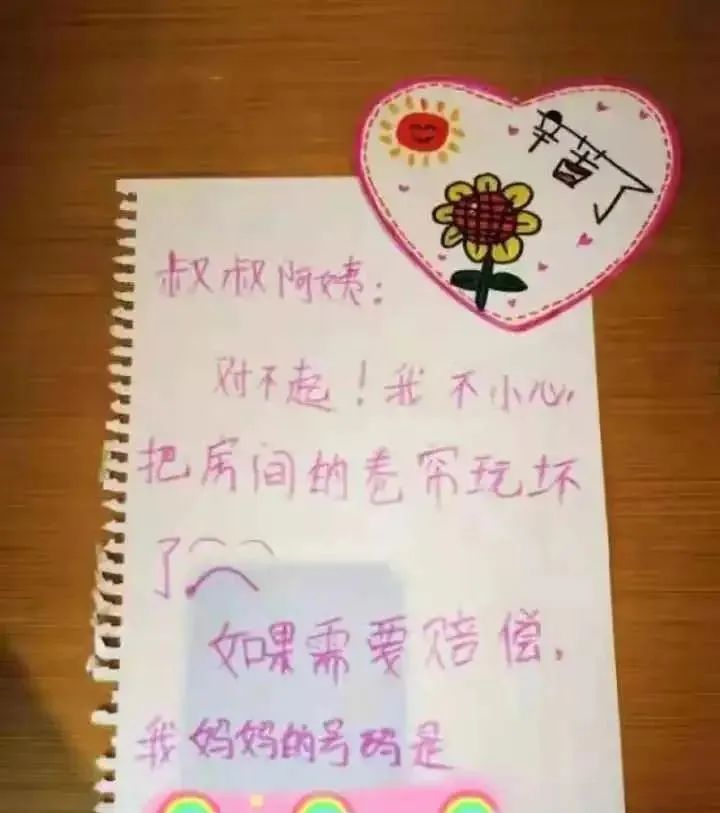 辛苦了
叔叔阿姨：
对不起！我不小心，
把房间的卷帘玩坏
了
如果需要赔偿，
我妈妈的号码是